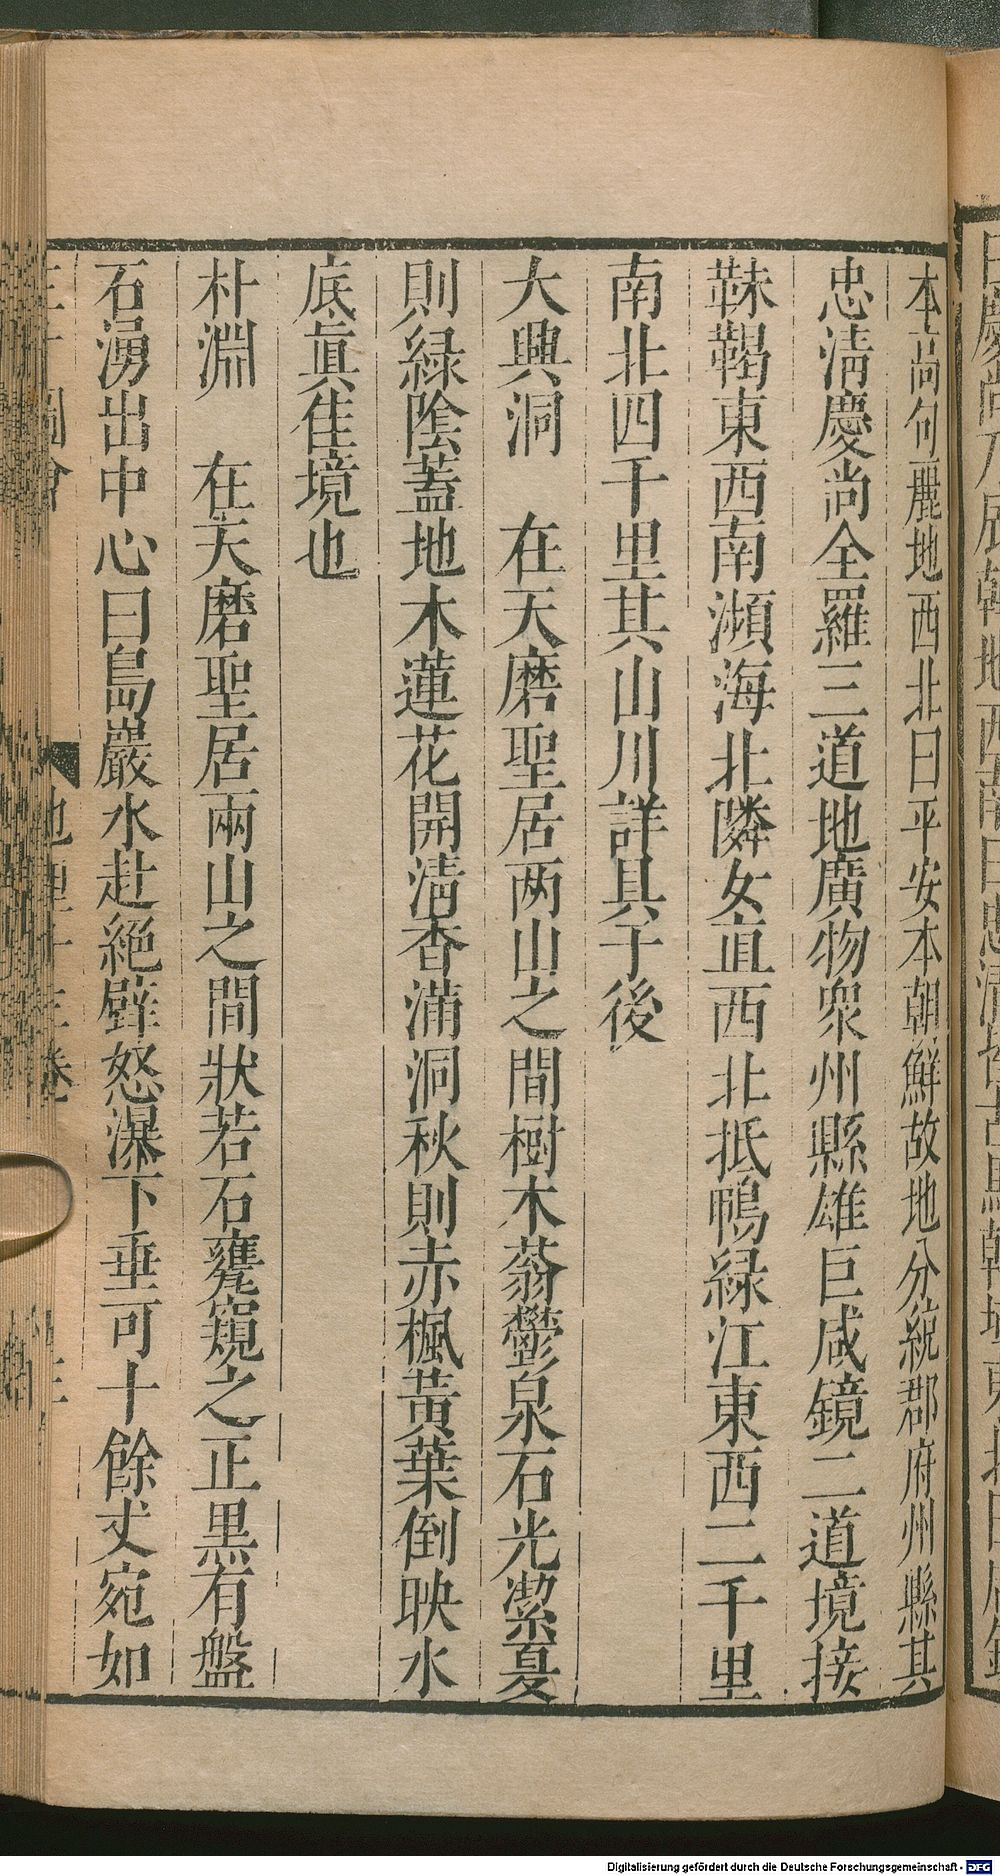 本高句麗地西北曰平安本朝鮮故地分統郡府州縣其
忠淸慶尚全羅三道地廣物衆州縣雄巨咸鏡二道境接
靺鞨東西南瀕海北隣女直西北抵鴨緑江東西二千里
南北四千里其山川詳具于後
大興洞　在天磨聖居两山之間樹木蓊鬱泉石光潔夏
則緑陰蓋地木蓮花開淸香滿洞秋則赤楓黃葉倒映水
底眞佳境也
朴淵　在天磨聖居兩山之間狀若石甕窺之正黒有盤
石湧出中心曰島巖水赴絕壁怒瀑下垂可十餘丈宛如
地理十三卷
Digitalisierung gefördert durch die Deutsche Forschungsgemeinschaft - DFG